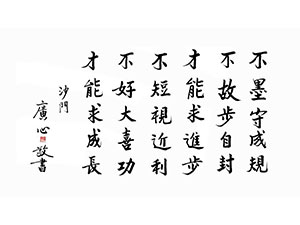 不墨守成規
不故步自封
才能求進步
不短視近利
不好大喜功
才能求成長
沙門
廣心敬書